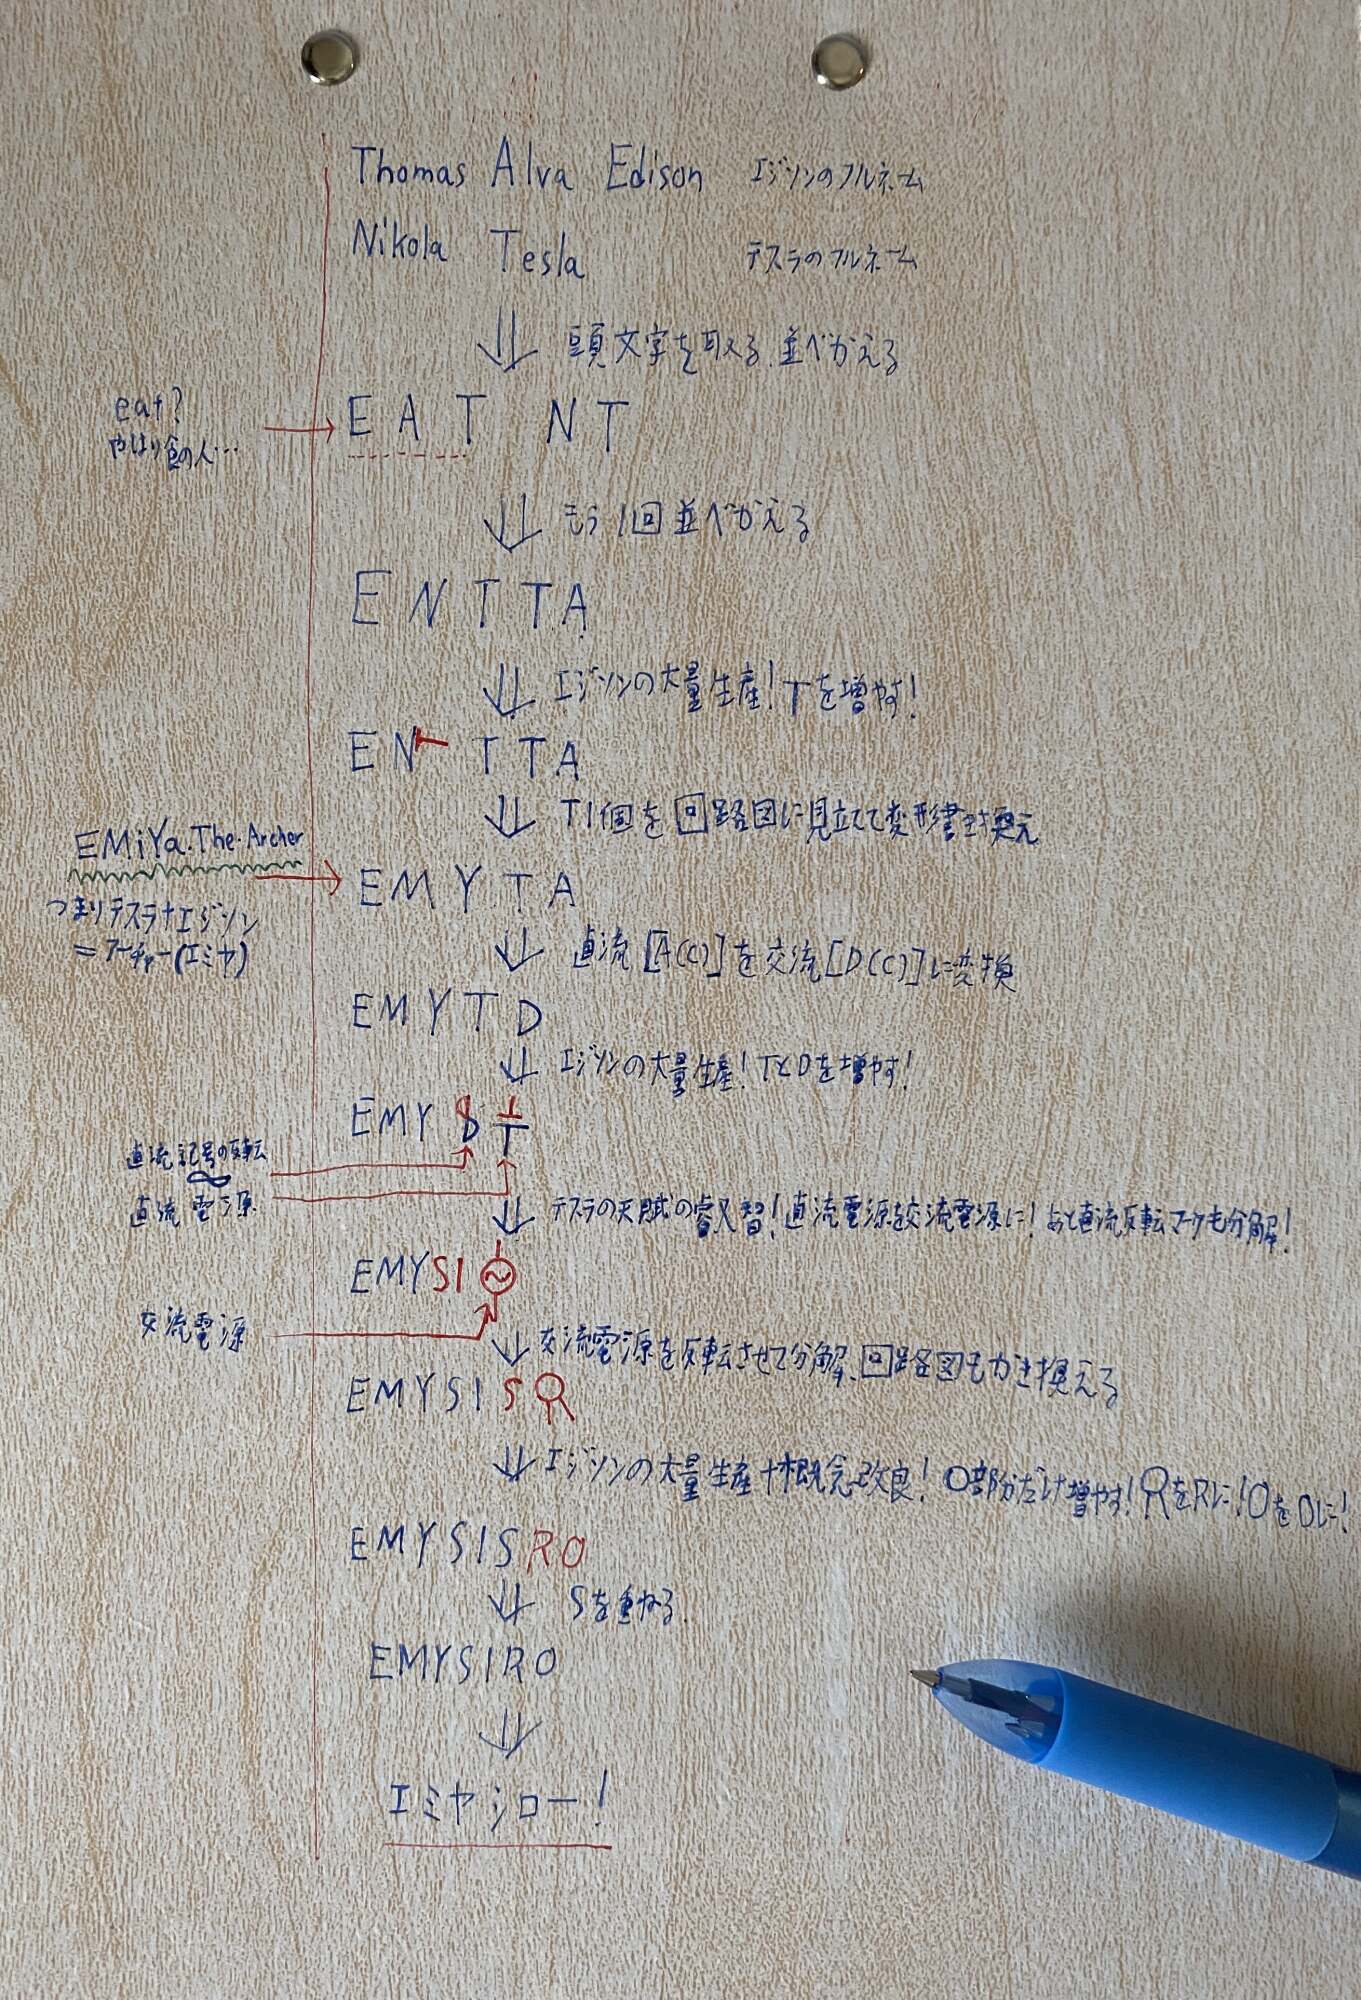 Thomas Alva Edison エジソンのフルネーム
Nikola Tesla テスラのフルネーム
頭文字を取る、並べかえる
eat?
やはり食の人…
EAT NT
もう1回並べかえる
ENTTA
エジソンの大量生産!Tを増やす!
EN T TTA
T1個を回路図に見立てて変形書き換え
EMiYa.The.Archer
つまりテスラ+エジソン
=アーチャー(エミヤ)
EMYTA
直流[A(C)]を交流[D(C)]に変換
EMYTD
エジソンの大量生産!TとDを増やす!
EMY
直流記号の反転
直流電源
テスラの天賦の叡智!直流電源を交流電源に!あと直流反転マークも分解!
EMYSI
交流電源
交流電源を反転させて分解、回路図もかき換える
EMYSIS
エジソンの大量生産+概念改良!O部分だけ増やす! をRに!OをOに!
EMYSISRO
Sを重ねる
EMYSIRO
エミヤシロー!